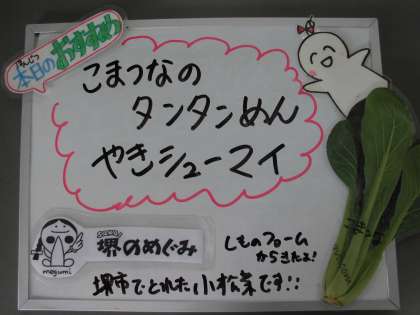 ほんじつ
本日のおすすめ
こまつなの
タンタンめん
やきシューマイ
堺のめぐみ
megumi
しものファーム
からきたよ!
堺市でとれた小松菜です!!